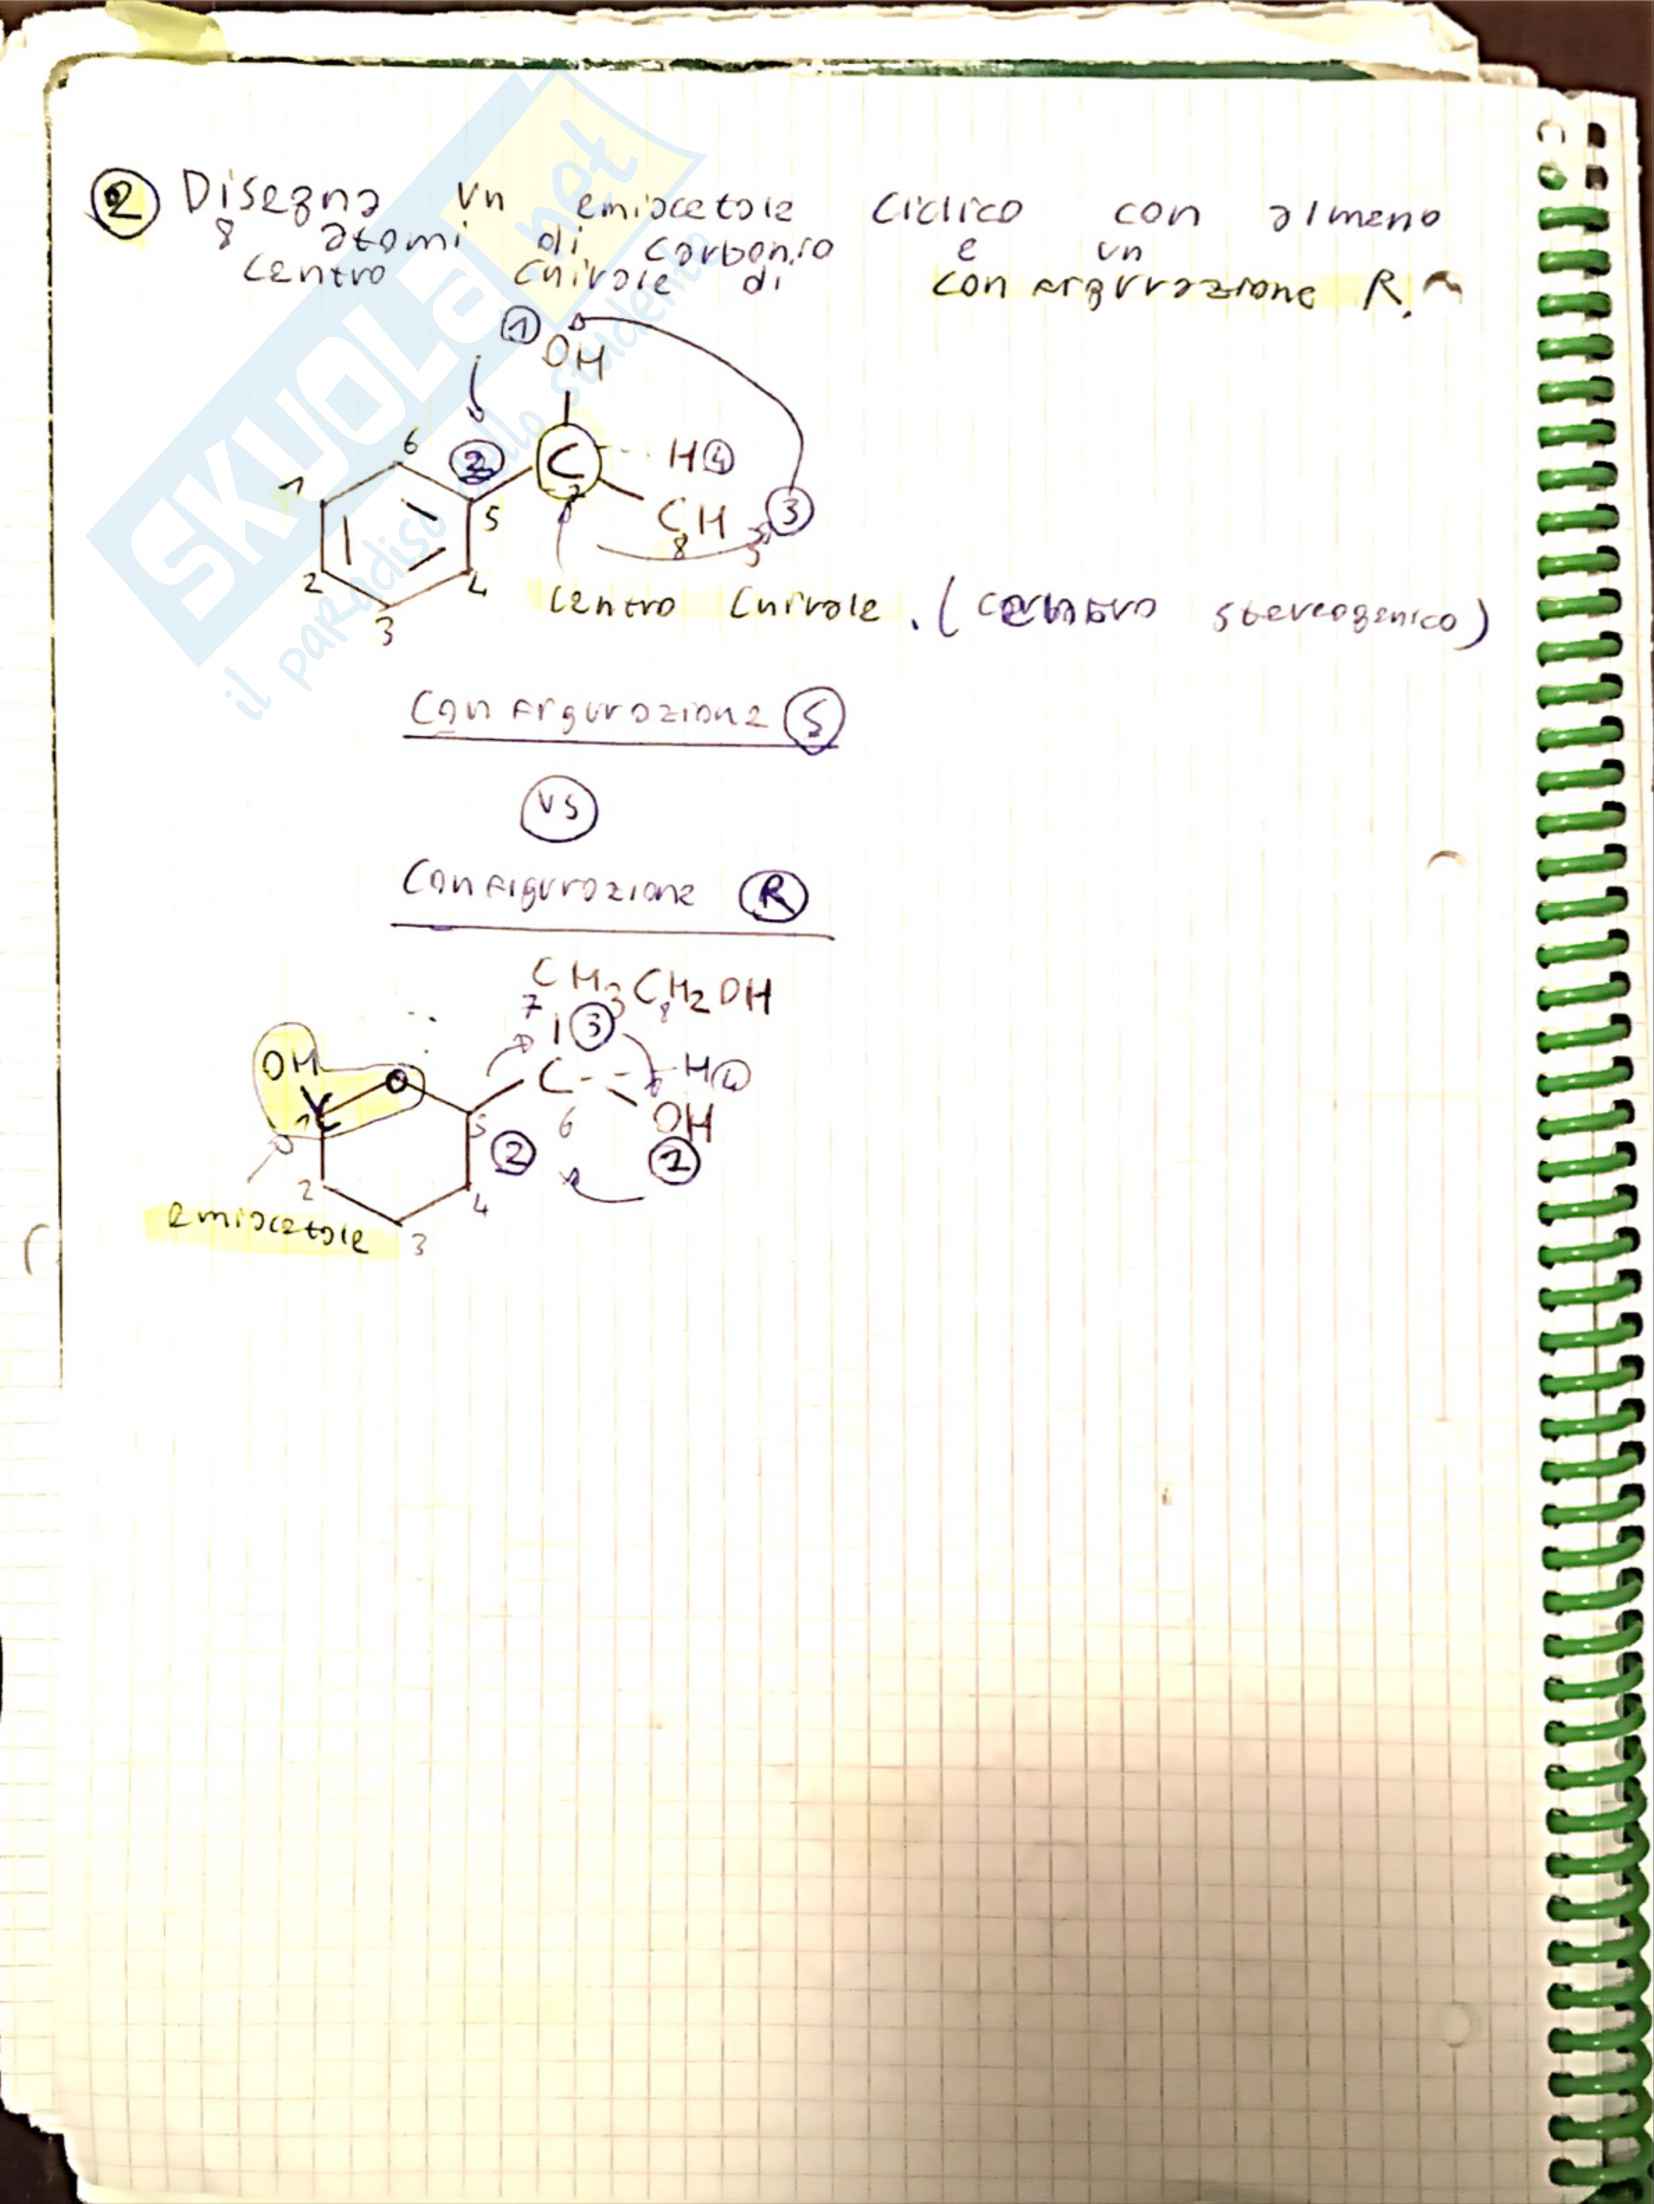 2 Disegna un emiacetale ciclico con almeno
8 atomi di carbonio e un
centro chirale di configurazione R.
1
OH
6 2 C H 4
1 7
5 CH 3 3
8
2 4
3
centro chirale. (centro stereogenico)
configurazione S
VS
Configurazione R
CH3CH2OH
7 8
3
OH O C H 4
1 C
5 6 OH
2 1
2 4
emiacetale 3
SKUOLA.net
il paradiso dello studente